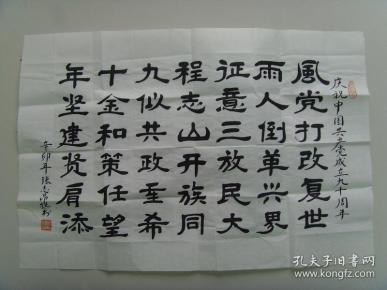 庆祝中国共产党成立九十周年
風雨征程九十年
党人意志似金坚
打倒三山共和建
改革开放政策贤
复兴民族任重肩
世界大同希望添
辛卯年张志
孔夫子旧书网